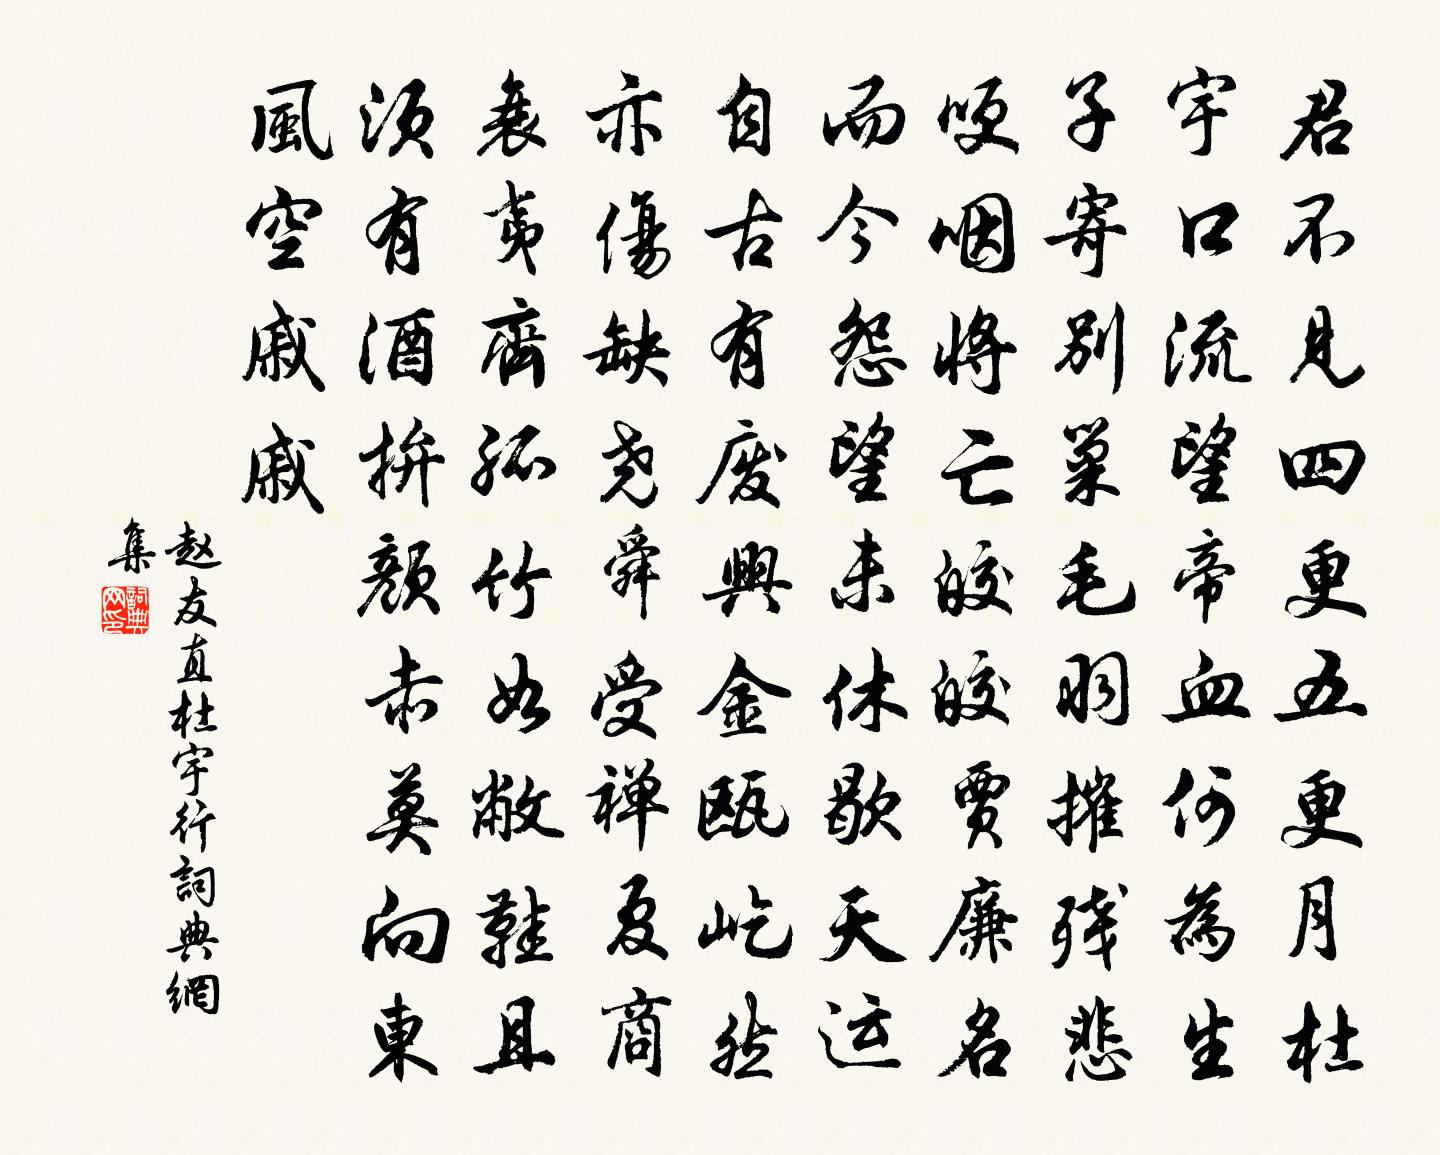 君不見四更五更月杜
宇口流望帝血何為生
子寄別巢毛羽摧残悲
哽咽將亡皎皎賈廉名
而今怨望未休歇天运
自古有廢興金甌屹然
亦傷缺尧舜受禅夏商
衰夷齊孤竹如敝鞋且
須有酒拚顏赤莫向東
風空戚戚
赵友直杜宇行詞典網
集
詞典网印